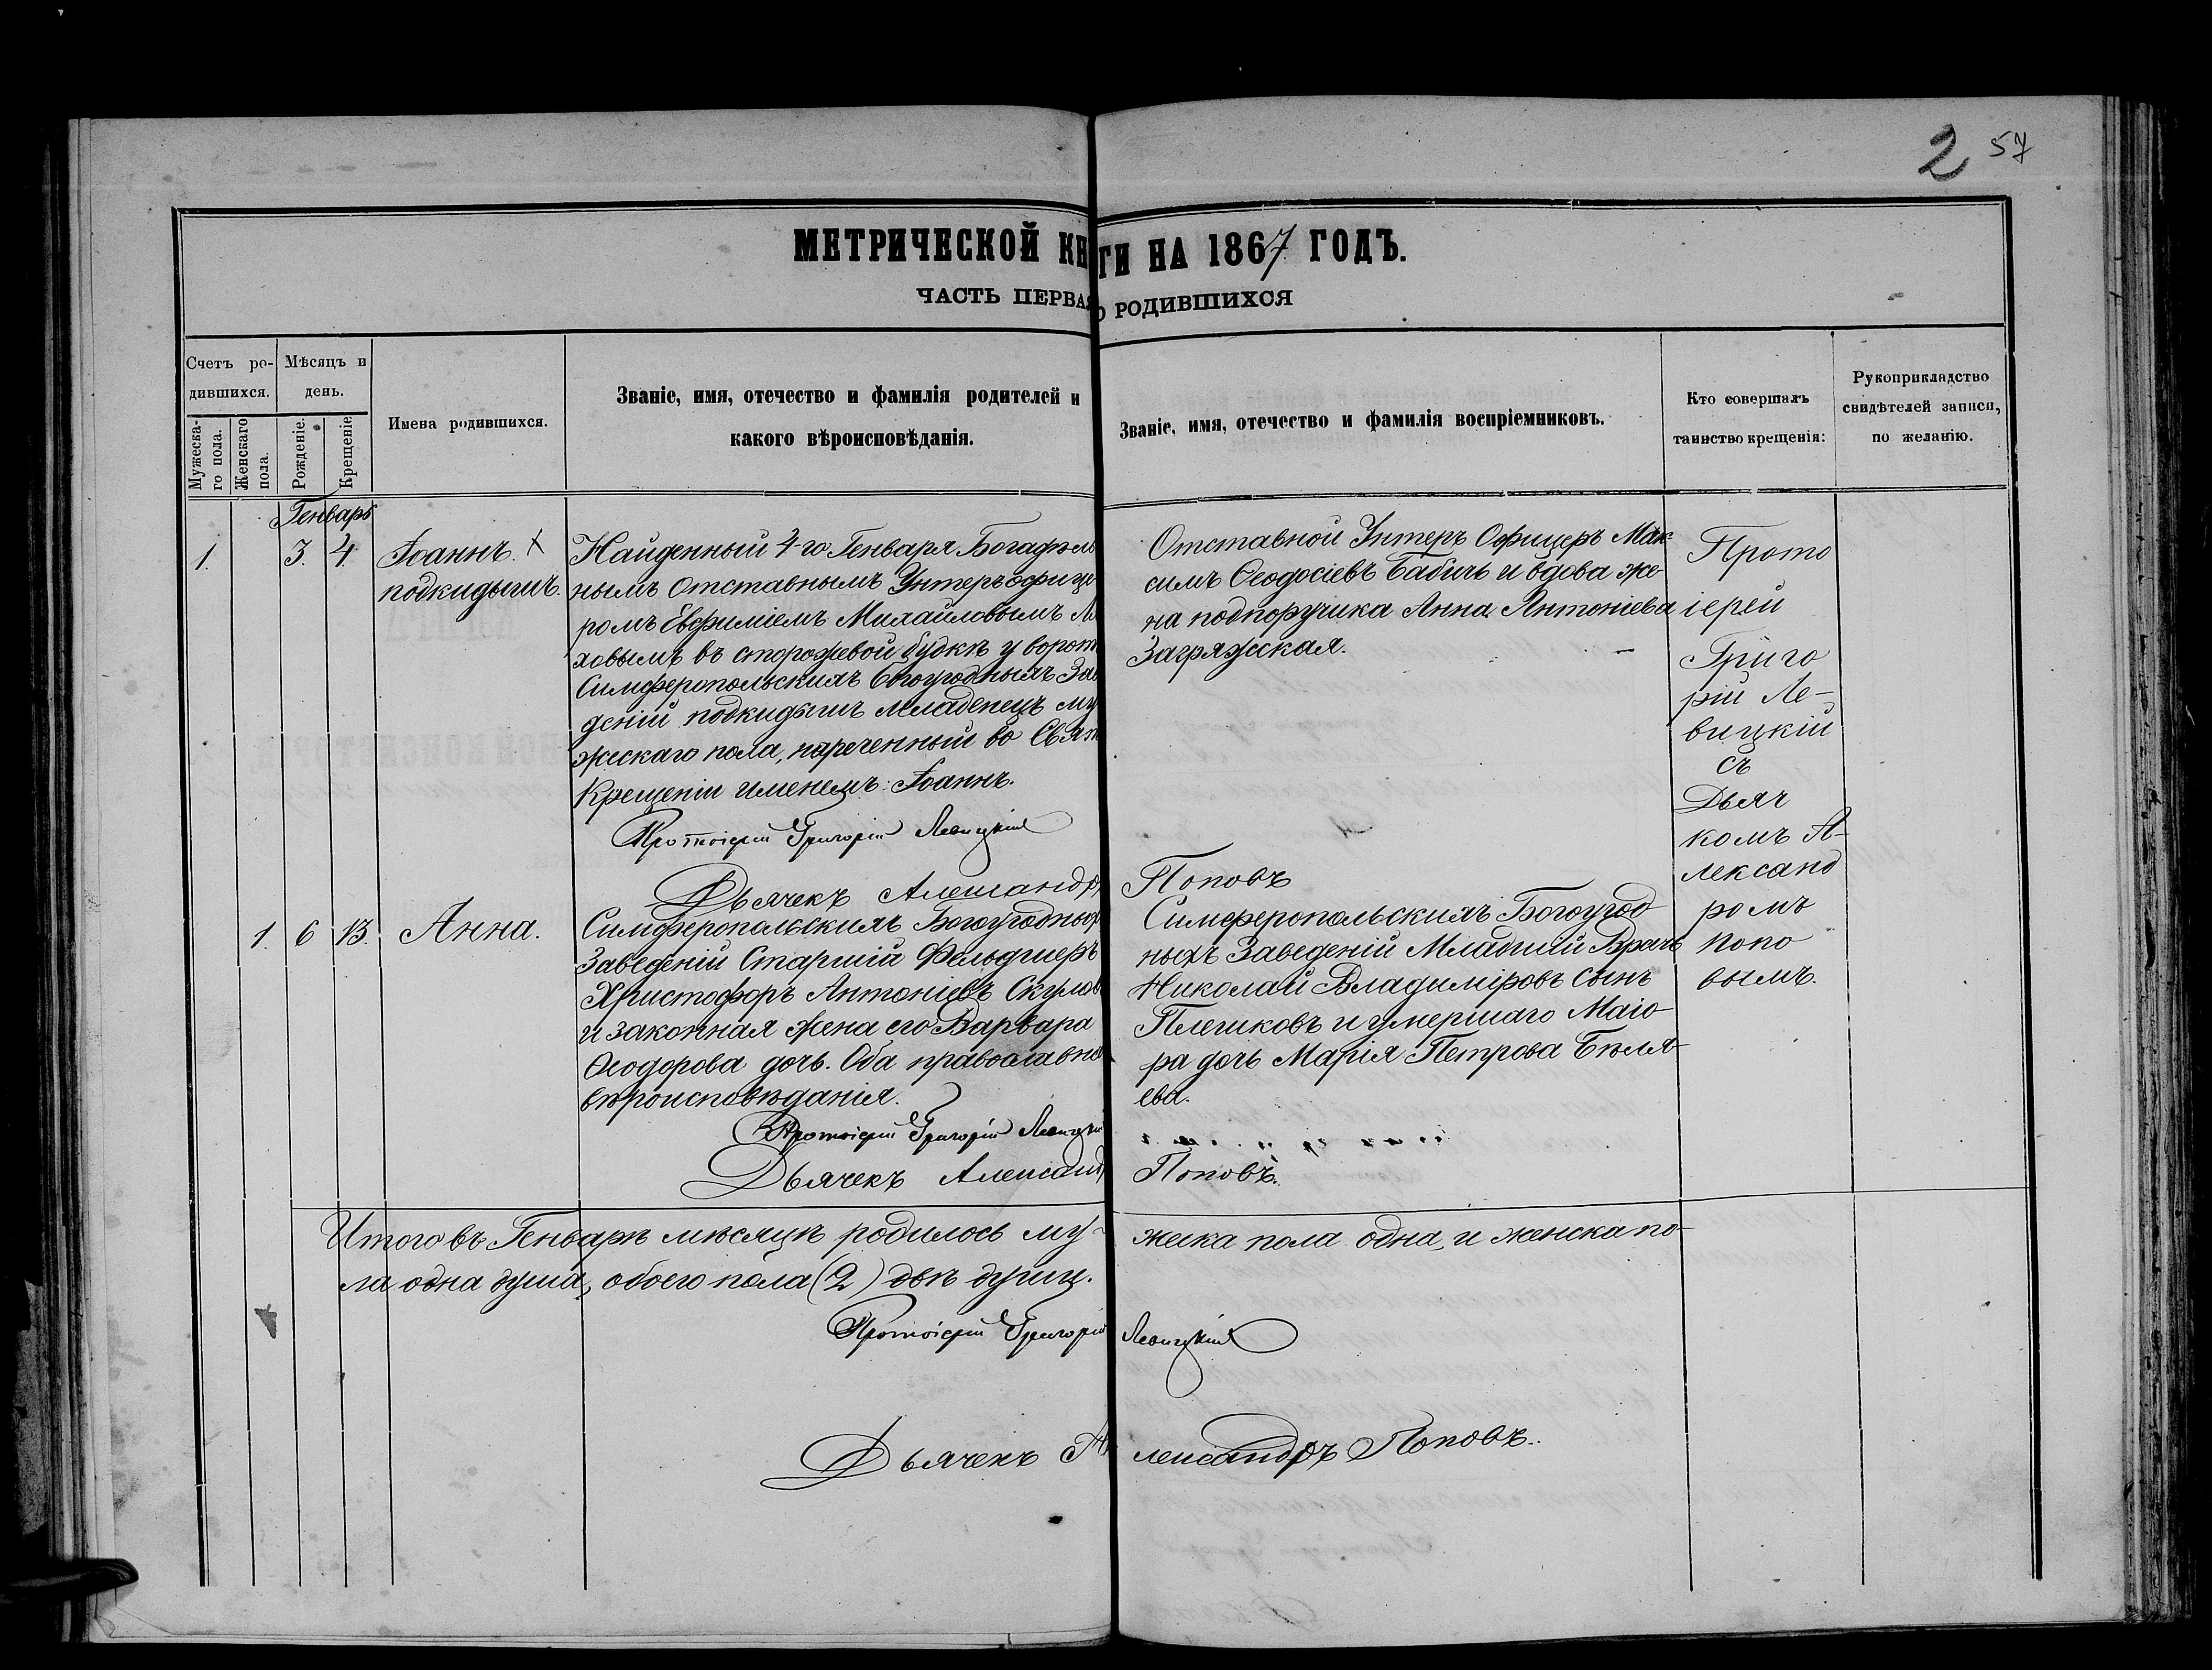 2 57
МЕТРИЧЕСКОЙ КНИГИ НА 1867 ГОДЪ.
ЧАСТЬ ПЕРВАЯ О РОДИВШИХСЯ
Счетъ ро-
дившихся.
Мужеска-
го пола.
Женскаго
пола.
Мѣсяцъ и
день.
Рожденіе.
Крещеніе
Имена родившихся.
Званіе, имя, отечество и фамилія родителей и
какого вѣроисповѣданія.
Званіе, имя, отечество и фамилія воспріемниковъ.
Кто совершалъ
таинство крещенія:
Рукоприкладство
свидѣтелей записи,
по желанію.
Генварь
1. 3. 4
Іоаннъ. X
подкидышъ.
Найденный 4-го Генваря Богадѣль
нымъ Отставнымъ Унтеръ офице
ромъ Евфиміемъ Михайловымъ
ховымъ въ сторожевой будкѣ у ворот
Симферопольскихъ Богоугодныхъ Зав
деній подкидышъ младенецъ му
жескаго пола, нареченный во Свят
Крещеніи именемъ: Іоаннъ.
Протоіерей Григорій Левицкій
Дьячекъ Александръ Поповъ
Отставной Унтеръ Офицеръ Мак
симъ Ѳеодосіевъ Бабичь и вдова же-
на подпоручика Анна Антоніева
Загряжская.
Прото
іерей
Григо
рій Ле-
вицкій
съ
Дьяч
комъ А-
лександ
ромъ
Попо
вымъ.
1. 6 13. Анна.
Симферопольскихъ Богоугодных
Заведеній Старшій Фельдшеръ
Христофоръ Антоніевъ Скулов
и законная жена его Варвара
Ѳеодорова дочь. Оба православна
вѣроисповѣданія.
Протоіерей Григорій Левицкі
Дьячекъ Александ Поповъ.
Симферопольскихъ Богоугод
ныхъ Заведеній Младшій Врачъ
Николай Владыміровъ сынъ
Плешковъ и умершаго Маіо-
ра дочь Марія Петрова Бѣля-
ева.
Итого въ Генварѣ мѣсяцѣ родилось му- жеска пола одна, и женска по-
ла одна душа, обоего пола (2) двѣ душы.
Протоіерей Григорій Левицкій
Дьячекъ Александръ Поповъ.